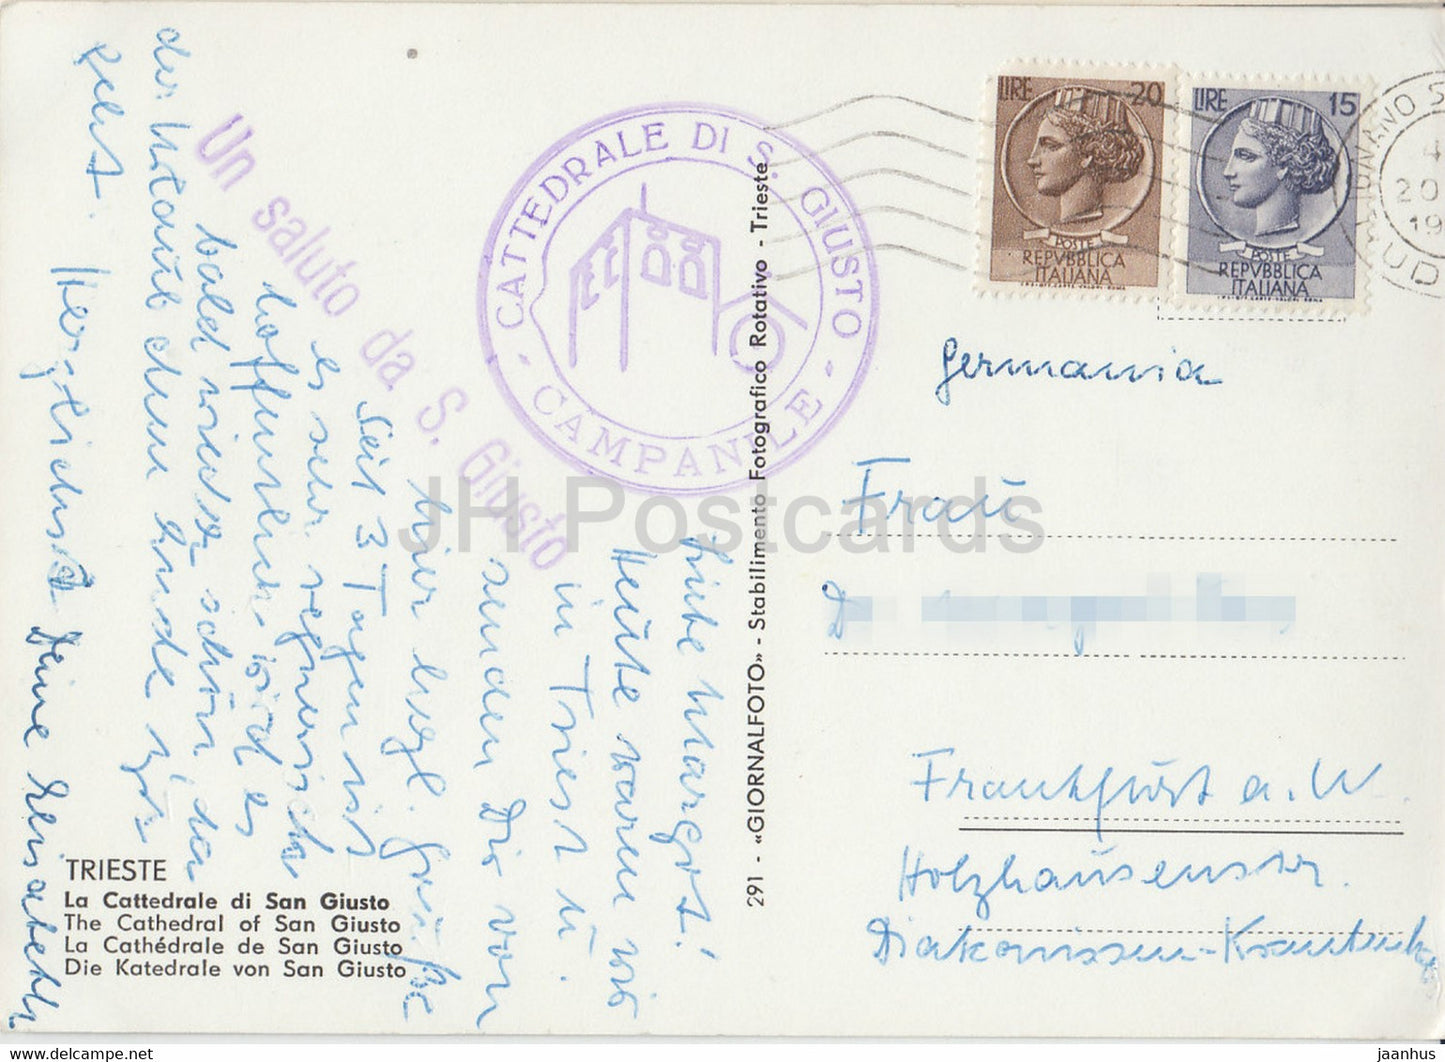 Liebe Margot!
Heute waren wir
in Triest u.
senden Dir von
hier herzl. Grüße
Seit 3 Tagen ist
es sehr regnerisch
hoffentlich wird es
bald wieder schön, da
der Urlaub dem Ende zu
geht. Herzlichst Deine Elisabeth
Un saluto da S. Giusto
CATTEDRALE DI S. GIUSTO
- CAMPANILE -
TRIESTE
La Cattedrale di San Giusto
The Cathedral of San Giusto
La Cathédrale de San Giusto
Die Katedrale von San Giusto
291 - «GIORNALFOTO» - Stabilimento Fotografico Rotativo - Trieste
LIRE 20
POSTE
REPVBBLICA
ITALIANA
LIRE 15
POSTE
REPVBBLICA
ITALIANA
4
20
19
Germania
Frau
Frankfurt a. M.
Holzhausenstr.
Diakonissen-Krankenh
JH Postcards
delcampe.net
jaanhus